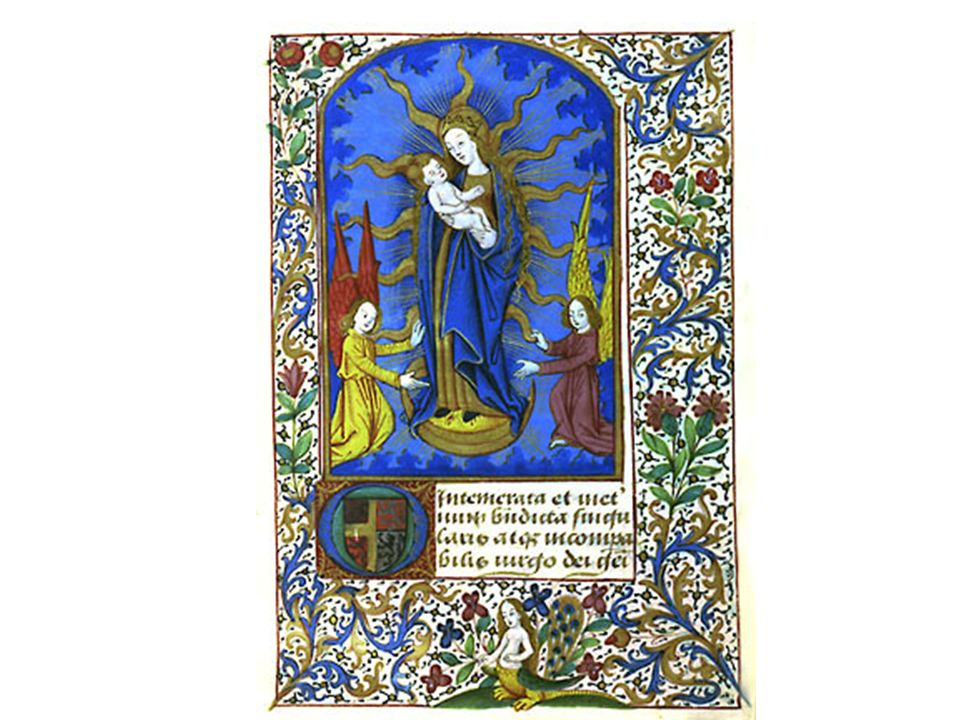 O Intemerata et inet'
nũ bñdicta singu
laris atqꝫ incompa
bilis uirgo dei gei